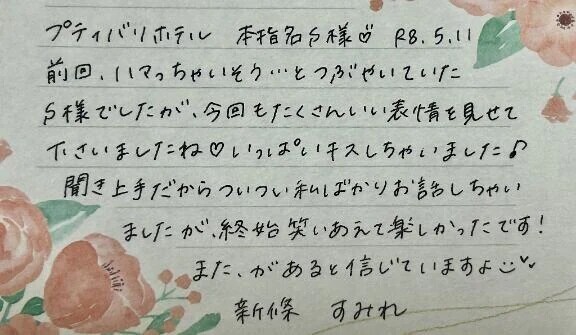 プティバリホテル 本指名S様♡ R8.5.11
前回、ハマっちゃいそう…とつぶやいていた
S様でしたが、今回もたくさんいい表情を見せて
下さいましたね♡いっぱいキスしちゃいました♪
聞き上手だからついつい私ばかりお話しちゃい
ましたが、終始笑いあえて楽しかったです!
また、があると信じていますよ
新條 すみれ